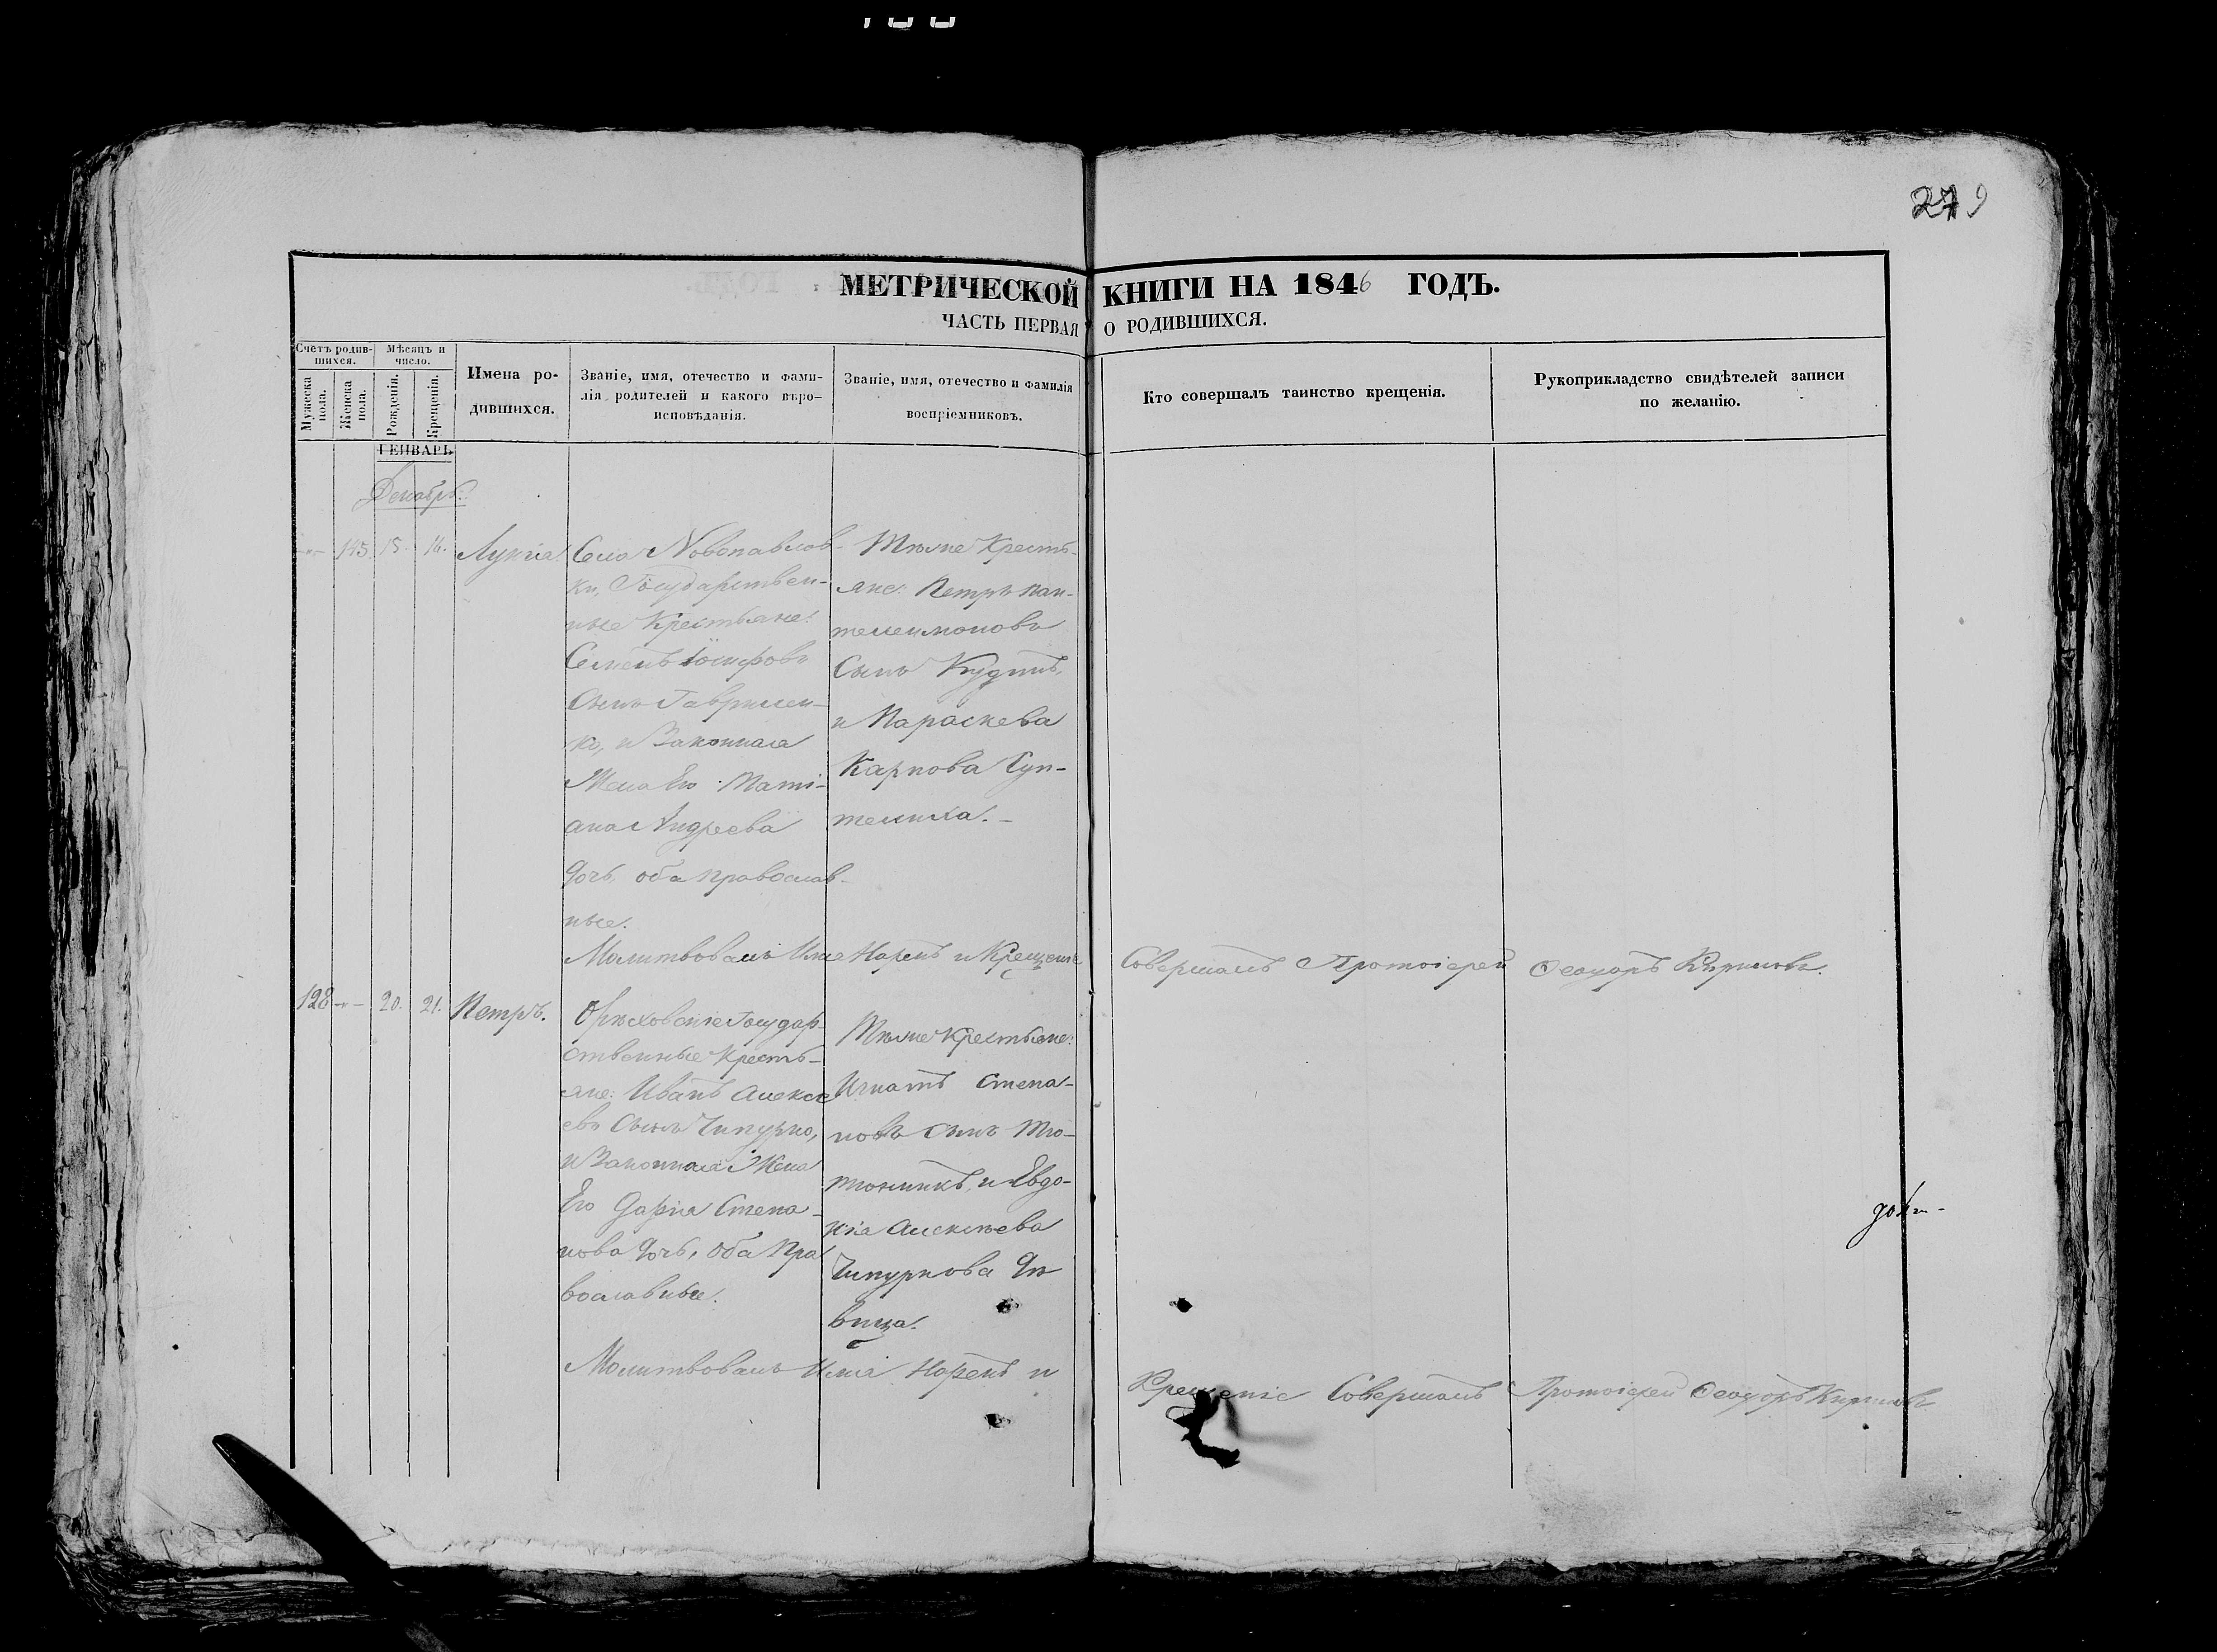 279
МЕТРИЧЕСКОЙ КНИГИ НА 1846 ГОДЪ.
ЧАСТЬ ПЕРВАЯ О РОДИВШИХСЯ.
Счетъ родив-
шихся.
Мѣсяцъ и
число.
Мужеска
пола.
Женска
пола.
Рожденія.
Крещенія.
Имена ро-
дившихся.
Званіе, имя, отечество и фами-
лія родителей и какого вѣро-
исповѣданія.
Званіе, имя, отечество и фамилія
воспріемниковъ.
Кто совершалъ таинство крещенія.
Рукоприкладство свидѣтелей записи
по желанію.
ГЕНВАРЬ
Декабрь.
145. 15. 16. Лукіа
Села Новопавлов-
ки, Государствен-
ные Крестьяне:
Семенъ Іосифовъ
Сынъ Гаврилен-
ко, и Законная
Жена Его Таті-
ана Андреева
дочь, оба православ-
ные.
Тѣже Кресть-
яне: Петръ Пан-
телеимоновъ
Сынъ
и Параскева
Карпова
Молитвовалъ Имя Нарекъ и Крещеніе Совершалъ Протоіерей Ѳеодоръ Кириловъ.
128 20. 21. Петръ.
Орѣховскіе Государ-
ственные Кресть-
яне: Иванъ Алексе
евъ Сынъ Чипурко,
и Законная Жена
Его Дарія Степа-
нова дочь, оба Пра
вославные.
Тѣже Крестьяне:
Игнатъ Степа-
новъ сынъ Тю-
тюникъ, и Евдо-
кіа Алексѣева
Чипуркова Дѣ
вица.
Молитвовалъ Имя Нарекъ и Крещеніе Совершалъ Протоіерей Ѳеодоръ Кириловъ